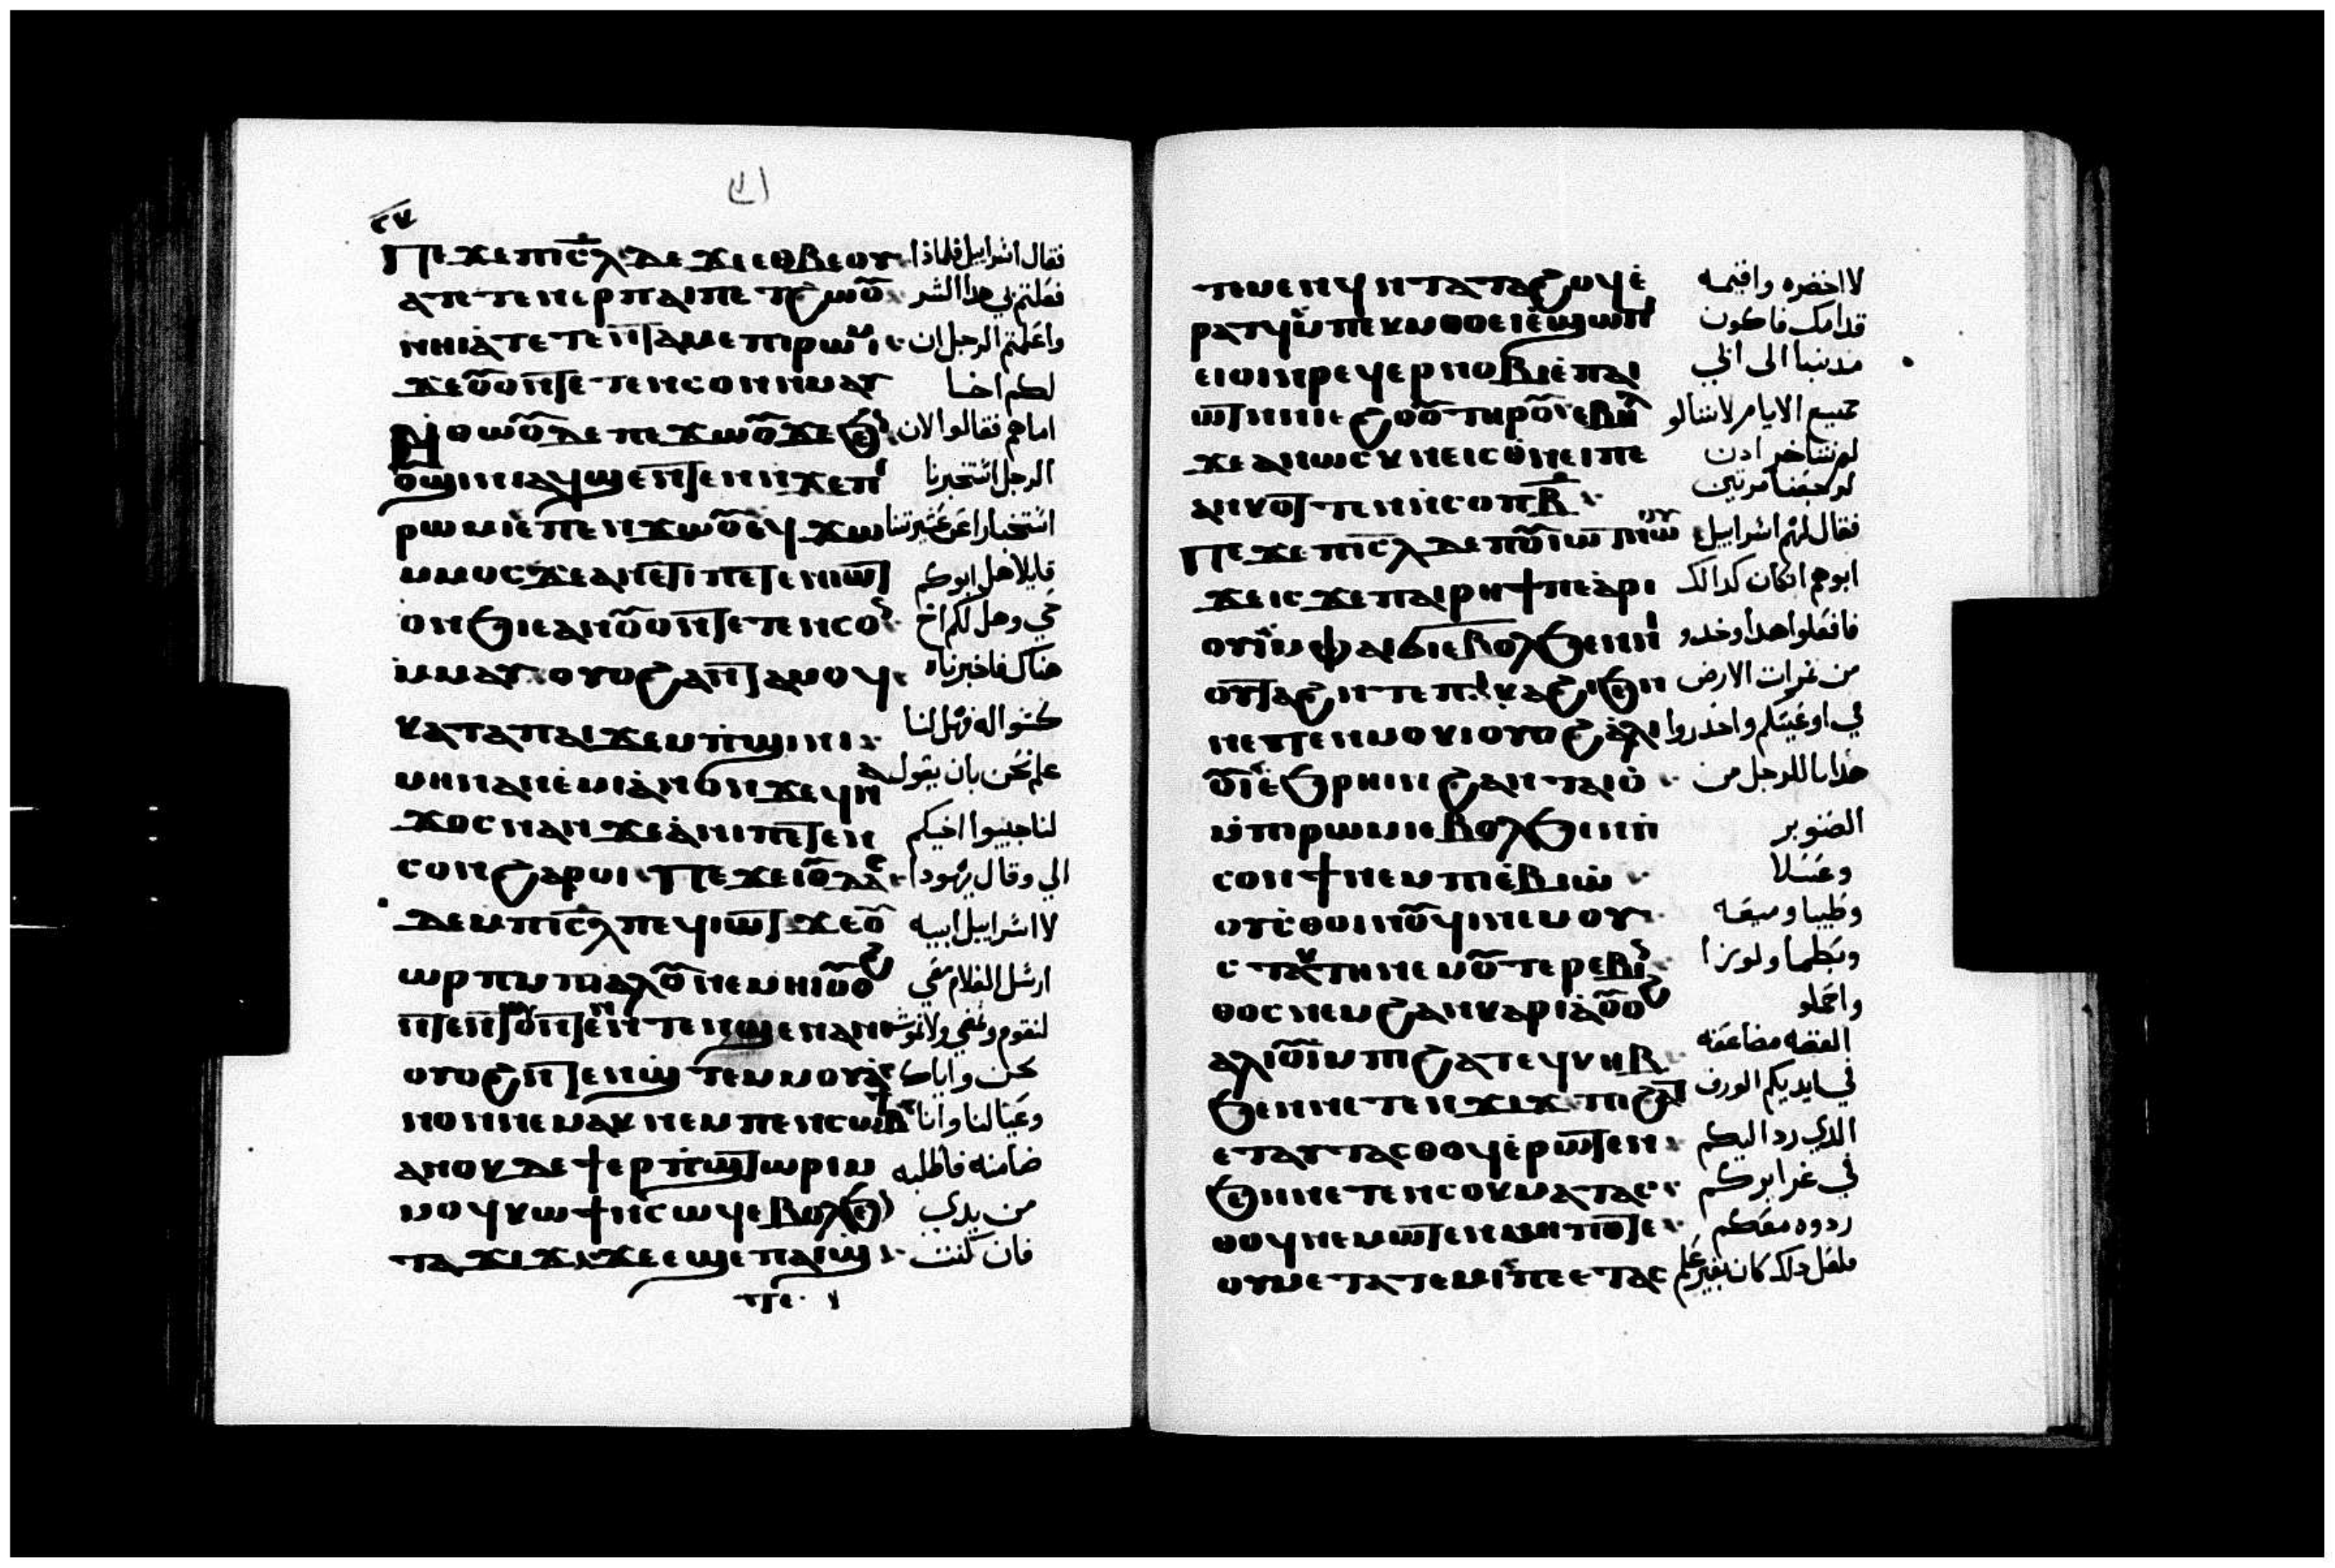 ⲡⲉϫⲉ ⲡⲓⲥ̅ⲗ ⲇⲉ ϫⲉ ⲉⲑⲃⲉⲟⲩ فقال اسراييل فلماذا
ⲁⲡⲉⲧⲉⲛⲉⲣⲡⲁⲓⲡⲉⲧϩⲱⲟ̅ فعلتم بي هدا الشر
ⲛⲏⲓ ⲁⲧⲉⲧⲉⲛⲧⲁⲙⲉ ⲡⲓⲣⲱⲙⲓ واعلمتم الرجل ان
ϫⲉ ⲟ̅ⲟⲛⲧⲉⲧⲉⲛ ⲥⲟⲛ ⲙⲙⲁⲩ لكم اخا
ⲛⲑⲱⲟ̅ ⲇⲉ ⲡⲉϫⲱⲟ̅ ϫⲉ ϧⲉ اماهم فقالوا الان
ⲟϣⲓⲛⲓ ⲁϥϣⲉⲛⲧⲉⲛ ⲛϫⲉ ⲡⲓ الرجل استخبرنا
ⲣⲱⲙⲓ ⲉⲡⲉⲛϫⲱⲟ̅ ⲉϥϫⲱ استخبارا عن عشيرتنا
ⲙⲙⲟⲥ ϫⲉ ⲁⲛ ⲉⲧⲓ ⲡⲉⲧⲉⲛⲓⲱⲧ قايلا هل ابوكم
ⲟⲛϧ ⲓⲉ ⲁⲛ ⲟ̅ⲟⲛⲧⲉⲧⲉⲛ ⲥⲟ حي وهل لكم اخ
ⲙⲙⲁⲩ ⲟⲩⲟϩ ⲁⲛⲧⲁⲙⲟϥ هناك فاخبرناه
ⲕⲁⲧⲁ ⲡⲁⲓϫⲉⲙⲡϣⲓⲛⲓ كسواله فهل لنا
ⲙⲏ ⲛⲁⲛⲉⲙⲓ ⲁⲛⲟⲛ ϫⲉ ϥⲛⲁ علم نحن بان يقول
ϫⲟⲥ ⲛⲁⲛ ϫⲉ ⲁⲛⲓ ⲡⲉⲧⲉⲛ لنا جيبوا اخيكم
ⲥⲟⲛ ϩⲁⲣⲟⲓ ⲡⲉϫⲉ ⲓⲟ̅ⲇⲁⲥ الي وقال يهودا
ⲇⲉ ⲙⲡⲓⲥ̅ⲗ ⲡⲉϥⲓⲱⲧ ϫⲉ ⲟ̅ لاسراييل ابيه
ⲱⲣⲡ ⲙⲡⲓⲁⲗⲟ̅ ⲛⲉⲙⲏⲓ ⲟ̅ⲟϩ ارسل الغلام معي
ⲛⲧⲉⲛⲧⲱⲟⲛⲧⲉⲛ ⲛⲧⲉⲛϣⲉ ⲛⲁⲛ لنقوم ونمضي ولا نموت
ⲟⲩⲟϩ ⲛⲧⲉⲛϣⲧⲉⲙⲙⲟⲩ ⲁ نحن واياك
ⲛⲟⲛ ⲛⲉⲙⲁⲕ ⲛⲉⲙ ⲡⲉⲛⲥⲱⲃⲕ وعيالنا وانا
ⲁⲛⲟⲕ ⲇⲉ ϯⲉⲣⲡϣⲧⲱⲣⲓ ⲙ ضامنه فاطلبه
ⲙⲟϥ ⲕⲱϯ ⲛⲥⲱϥ ⲉⲃⲟⲗϧⲉ من يدي
ⲧⲁϫⲓϫ ϫⲉ ⲉϣⲉⲡ ⲁⲓϣ فان كنت
ⲧⲉⲙⲉⲛϥ ⲛⲧⲁⲧⲁϩⲟϥ ⲉ لا احضره واقيمه
ⲣⲁⲧϥ ⲙⲡⲉⲕⲙⲑⲟ ⲉⲓⲉϣⲱⲡⲓ قدامك فاكون
ⲉⲓⲟⲓ ⲛⲣⲉϥⲉⲣⲛⲟⲃⲓ ⲉⲡⲁⲓ مدنبا الى ابي
ⲱⲧ ⲛⲛⲓⲉϩⲟⲟ̅ ⲧⲏⲣⲟ̅ ⲉⲃⲏⲗ جميع الايام لاننا لو
ϫⲉ ⲁⲛⲱⲥⲕ ⲛⲉ ⲓⲥ ⲟⲛ ⲉⲓ ⲡⲉ لم نتاخر ادن
ⲁⲛⲕⲟⲧⲧⲉⲛ ⲛⲥⲟⲡ ⲃ̅ لرجعنا مرتين
ⲡⲉϫⲉ ⲡⲓⲥ̅ⲗ ⲇⲉ ⲡⲟ̅ⲓⲱⲧ ⲛⲱⲟⲩ فقال لهم اسراييل
ϫⲉ ⲓⲥϫⲉ ⲡⲁⲓⲣⲏϯ ⲡⲉ ⲁⲣⲓ ابوهم ان كان كدالك
ⲟⲩⲓ ⲙⲫⲁⲓ ϭⲓ ⲉⲃⲟⲗϧⲉⲛ ⲛⲓ فافعلوا هدا وخدو
ⲟⲩⲧⲁϩ ⲛⲧⲉ ⲡⲕⲁϩⲓ ϧⲉⲛ من تمرات الارض
ⲛⲉⲧⲉⲛⲙⲟⲕⲓ ⲟⲩⲟϩ ⲁⲛⲓ في اوعيتكم واحدروا
ⲟ̅ⲓ ⲉϧⲣⲏⲓ ⲛϩⲁⲛⲧⲁⲓⲟ هدايا للرجل من
ⲙⲡⲓⲣⲱⲙⲓ ⲉⲃⲟⲗϧⲉⲛ ⲛ الصنوبر
ⲥⲟⲛϯ ⲛⲉⲙ ⲡⲓⲉⲃⲓⲱ وعسلا
ⲟⲩⲥⲑⲟⲓⲛⲟ̅ϥⲓ ⲛⲉⲙ ⲟⲩ وطيبا وميعه
ⲥⲧⲁⲕⲧⲏ ⲛⲉⲙ ⲟ̅ⲧⲉⲣⲉⲃⲓ وبطما ولوزا
ⲑⲟⲥ ⲛⲉⲙ ϩⲁⲛⲕⲁⲣⲓⲁ ⲟ̅ⲟϩ واحملو
ⲁⲗⲓⲟ̅ⲓ ⲙⲡⲓϩⲁⲧ ⲉϥⲕⲏⲃ الفضه مضاعفه
ϧⲉⲛ ⲛⲉⲧⲉⲛϫⲓϫ ⲡⲓϩⲁⲧ في ايديكم الورق
ⲉⲧⲁⲩⲧⲁⲥⲑⲟϥ ⲉⲣⲱⲧⲉⲛ الدي رد اليكم
ϧⲉⲛ ⲛⲉⲧⲉⲛⲥⲟⲕ ⲙⲁⲧⲁⲥ في غرايركم
ⲑⲟϥ ⲛⲉⲙⲱⲧⲉⲛ ⲙⲏⲡⲟⲧⲉ ردوه معكم
ⲟⲩⲙⲉⲧⲁⲧⲉⲙⲓ ⲡⲉ ⲉⲧⲁⲥ فلعل دلك كان بغير علم